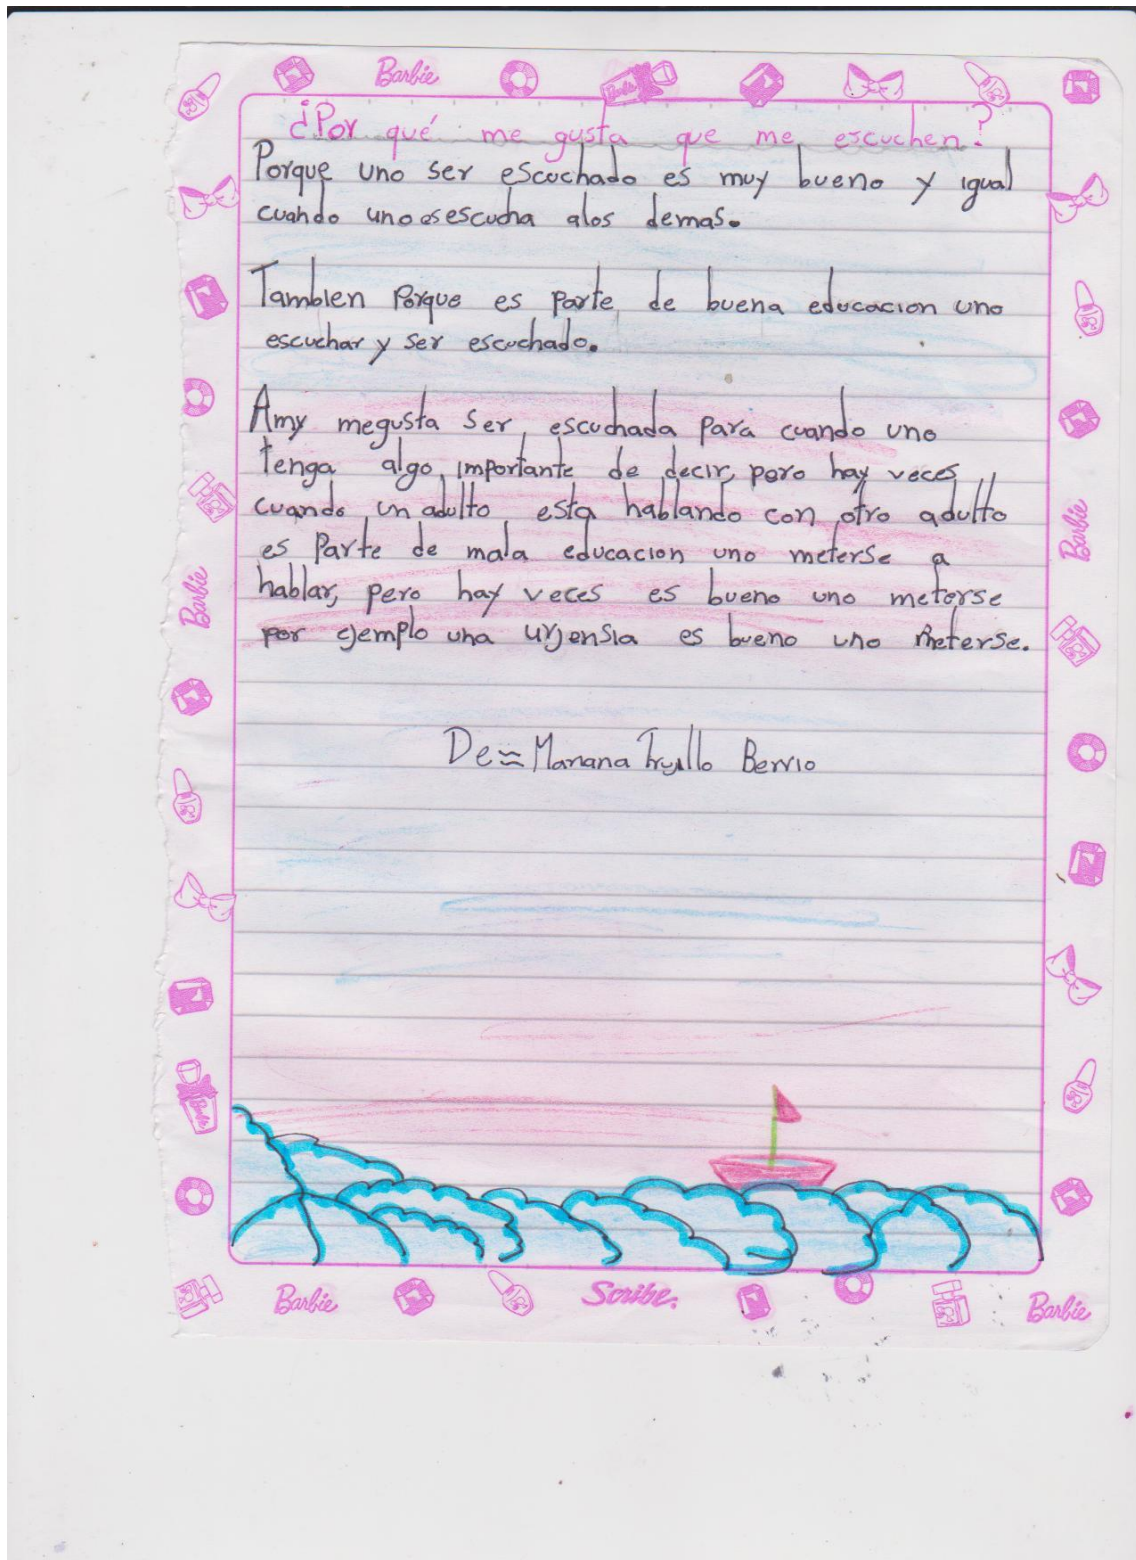 Barbie
Barbie
¿Por qué me gusta que me escuchen?
Porque uno ser escuchado es muy bueno y igual
cuando uno escucha alos demas.
Tambien Porque es parte de buena educacion uno
escuchar y ser escuchado.
Amy megusta ser escuchada para cuando uno
tenga algo importante de decir, pero hay veces
cuando un adulto esta hablando con otro adulto
es Parte de mala educacion uno meterse a
hablar, pero hay veces es bueno uno meterse
por ejemplo una urjensia es bueno uno meterse.
De≈ Mariana Trujillo Berrio
Barbie
Barbie
Barbie
Barbie
Scribe.
Barbie